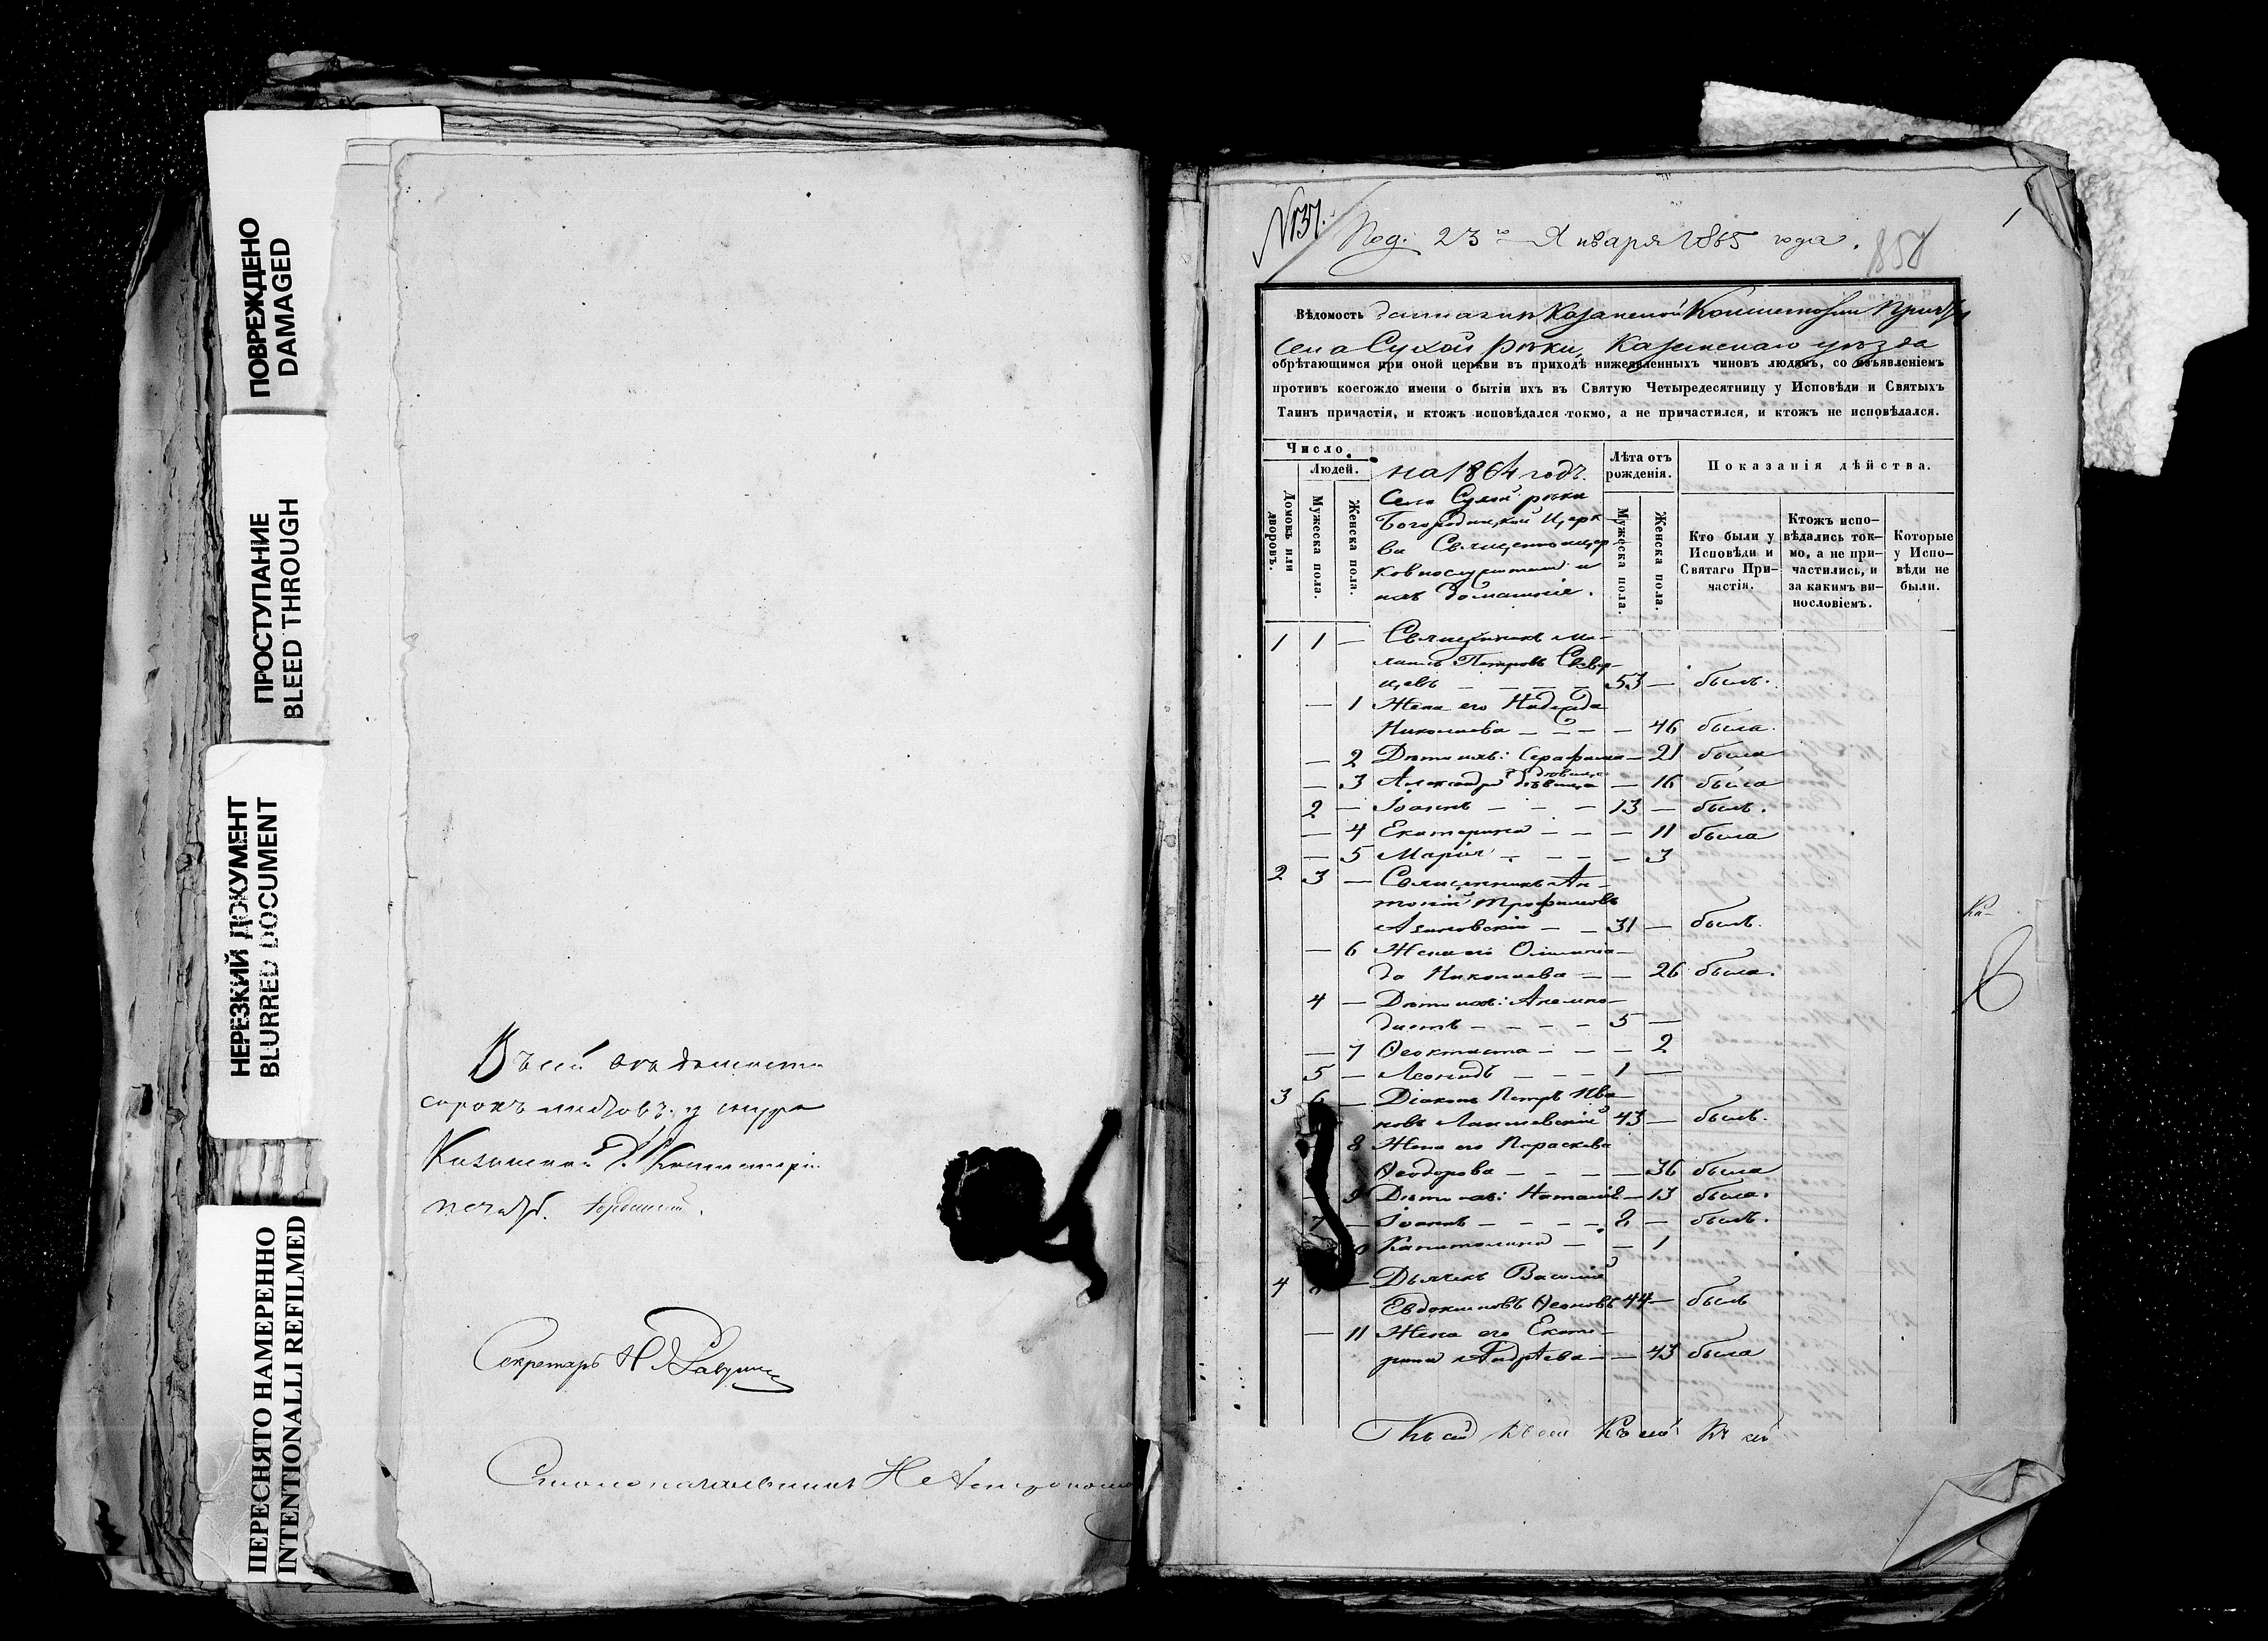 ПОВРЕЖДЕНО
DAMAGED
ПРОСТУПАНИЕ
BLEED THROUGH
НЕРЕЗКИЙ ДОКУМЕНТ
BLURRED DOCUMENT
ПЕРЕСНЯТО НАМЕРЕННО
INTENTIONALLI REFILMED
Въ сей вѣдомости
сорокъ листовъ, у шнура
Казанской Д. Консисторіи
печать.
Секретарь Н
Столоначальникъ Н
1
№ 137.
Под. 23го Января 1865 года.
858
Вѣдомость данная изъ Казанской Консисторіи Причту
села Сухой рѣки, Казанскаго уѣзда
обрѣтающимся при оной церкви въ приходѣ нижеявленныхъ чиновъ людямъ, со изъявленіемъ
противъ коегождо имени о бытіи ихъ въ Святую Четыредесятницу у Исповѣди и Святыхъ
Таинъ причастія, и ктожъ исповѣдался токмо, а не причастился, и ктожъ не исповѣдался.
Число.
Людей.
Домовъ или дворовъ.
Мужеска пола.
Женска пола.
на 1864 годъ.
Села Сухой рѣки
Богородицкой Церк-
ви Священноцер-
ковнослужители и
ихъ домашніе.
Лѣта отъ рожденія.
Мужеска пола.
Женска пола.
Показанія дѣйства.
Кто были у Исповѣди и Святаго При-частія.
Ктожъ испо-вѣдались ток-мо, а не при-частились, и за какимъ ви-нословіемъ.
Которые у Испо-вѣди не были.
1 1 — Священникъ Ми-
хаилъ Петровъ Сквор-
цовъ — — — 53 — былъ.
— 1 Жена его Надежда
Николаева — — — — 46 была.
— 2 Дѣти ихъ: Серафима — 21 была
— 3 Александра дѣвица — 16 была
2 — Іоаннъ — — — 13 — былъ.
— 4 Екатерина — — — 11 была
— 5 Марія — — — 3
2 3 — Священникъ Ан-
тоній Трофимовъ
Азановскій — — 31 — былъ.
— 6 Жена его Олимпіа-
да Николаева — — 26 была.
4 — Дѣти ихъ: Анемпо-
дистъ — — — — 5 —
— 7 Ѳеоктиста — — — 2
5 — Леонидъ — — — 1 —
3 6 — Діаконъ Петръ Ива-
новъ Лаишевскій 43 — былъ.
8 Жена его Параскева
Ѳеодорова — — — — 36 была
9 Дѣти ихъ: Наталія — 13 была.
7 — Іоаннъ — — — — 8 — былъ.
10 Капитолина — — 1
4 — Дьячекъ Василій
Евдокимовъ 44 — былъ
— 11 Жена его Екате-
рина Андрѣева — — 43 была
Къ сей къ сей Къ сей Къ сей